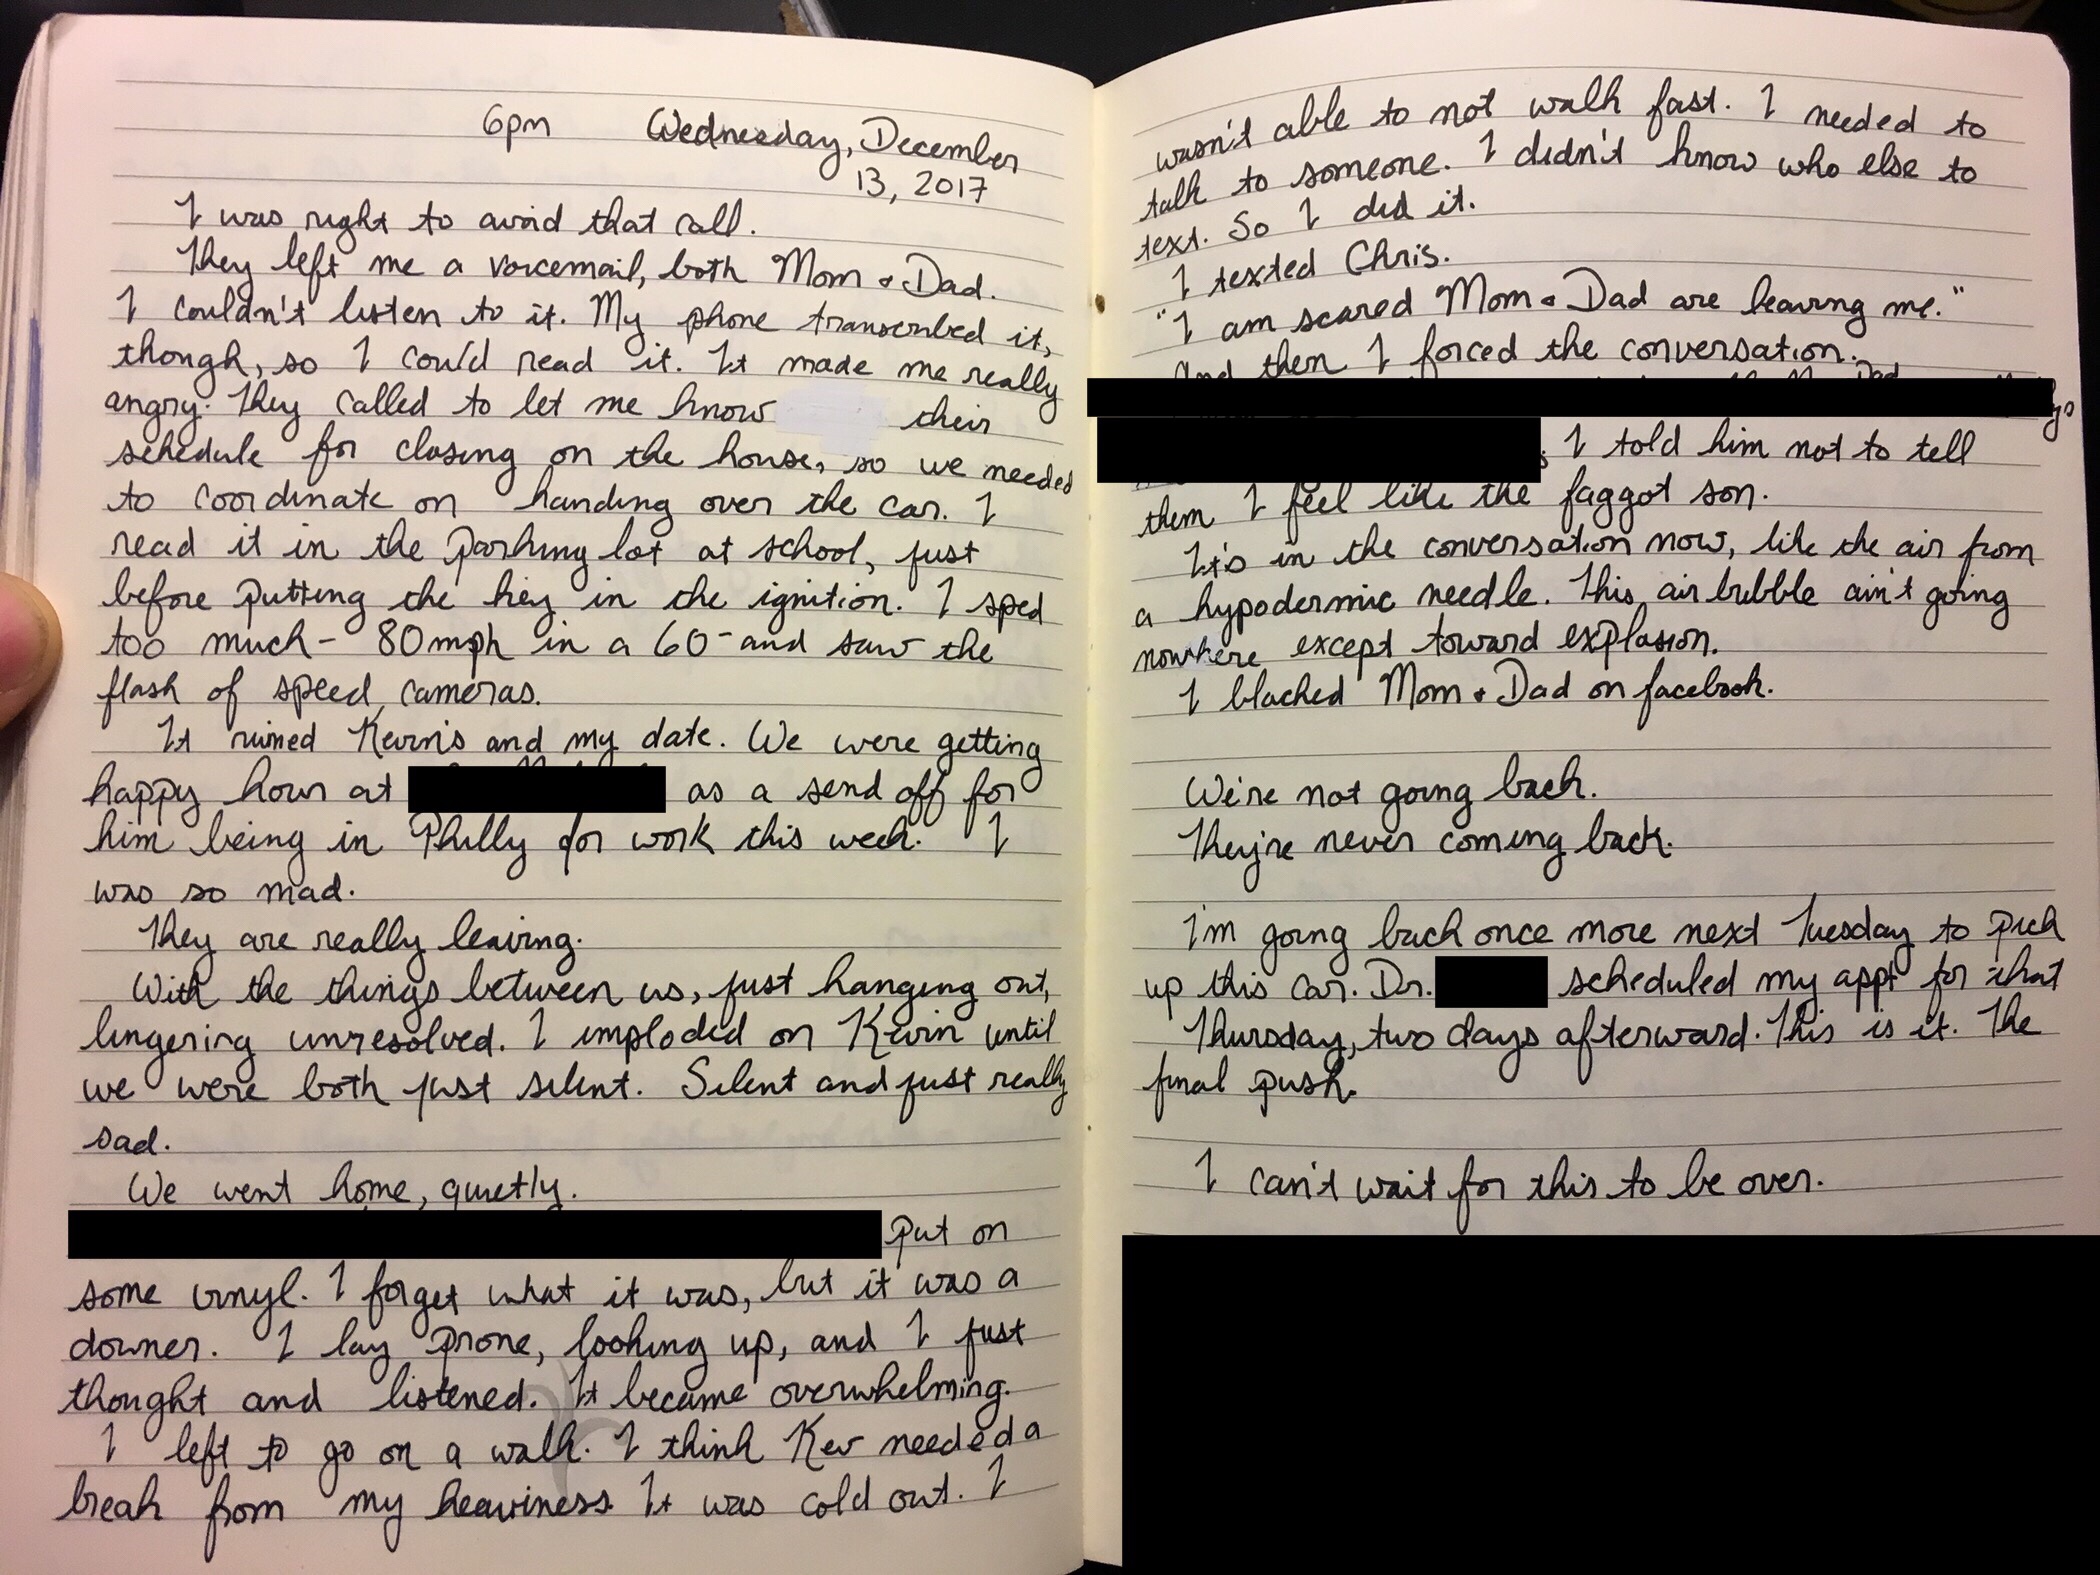 6pm Wednesday, December
13, 2017
I was right to avoid that call.
They left me a voicemail, both Mom & Dad.
I couldn't listen to it. My phone transcribed it,
though, so I could read it. It made me really
angry. They called to let me know their
schedule for closing on the house, so we needed
to coordinate on handing over the car. I
read it in the parking lot at school, just
before putting the key in the ignition. I sped
too much - 80mph in a 60 - and saw the
flash of speed cameras.
It ruined Kevin's and my date. We were getting
happy hour at as a send off for
him being in Philly for work this week. I
was so mad.
They are really leaving.
With the things between us, just hanging out,
lingering unresolved. I imploded on Kevin until
we were both just silent. Silent and just really
sad.
We went home, quietly.
put on
some vinyl. I forget what it was, but it was a
downer. I lay prone, looking up, and I just
thought and listened. It became overwhelming.
I left to go on a walk. I think Kev needed a
break from my heaviness. It was cold out. I
wasn't able to not walk fast. I needed to
talk to someone. I didn't know who else to
text. So I did it.
I texted Chris.
"I am scared Mom & Dad are leaving me."
And then I forced the conversation.
I told him not to tell
them I feel like the faggot son.
It's in the conversation now, like the air from
a hypodermic needle. This air bubble ain't going
nowhere except toward explosion.
I blocked Mom & Dad on facebook.
We're not going back.
They're never coming back.
I'm going back once more next Tuesday to pick
up this car. Dr. scheduled my appt for that
Thursday, two days afterward. This is it. The
final push.
I can't wait for this to be over.